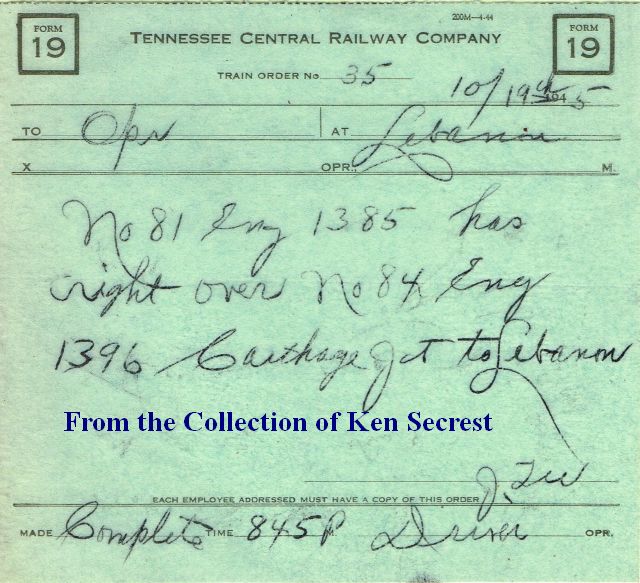 FORM 19
200M—4-44
FORM 19
TENNESSEE CENTRAL RAILWAY COMPANY
TRAIN ORDER No 35
10/19 1945
TO Opr AT Lebanon
X OPR. M.
No 81 Eng 1385 has
right over No 84 Eng
1396 Carthage Jct to Lebanon
From the Collection of Ken Secrest
EACH EMPLOYEE ADDRESSED MUST HAVE A COPY OF THIS ORDER
MADE Complete TIME 845 P M. Driver OPR.